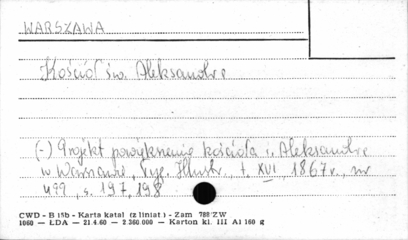 WARSZAWA
Kościół św. Aleksandra
(-) Projekt powiększenia kościoła ś. Aleksandra
w Warszawie, Tyg. Illustr., t. XVI 1867 r., nr
499, s. 197, 198
CWD - B 15b - Karta katal (z liniat.) - Zam 788/ZW
1060 — ŁDA — 21.4.60 — 2.360.000 — Karton kl. III A1 160 g